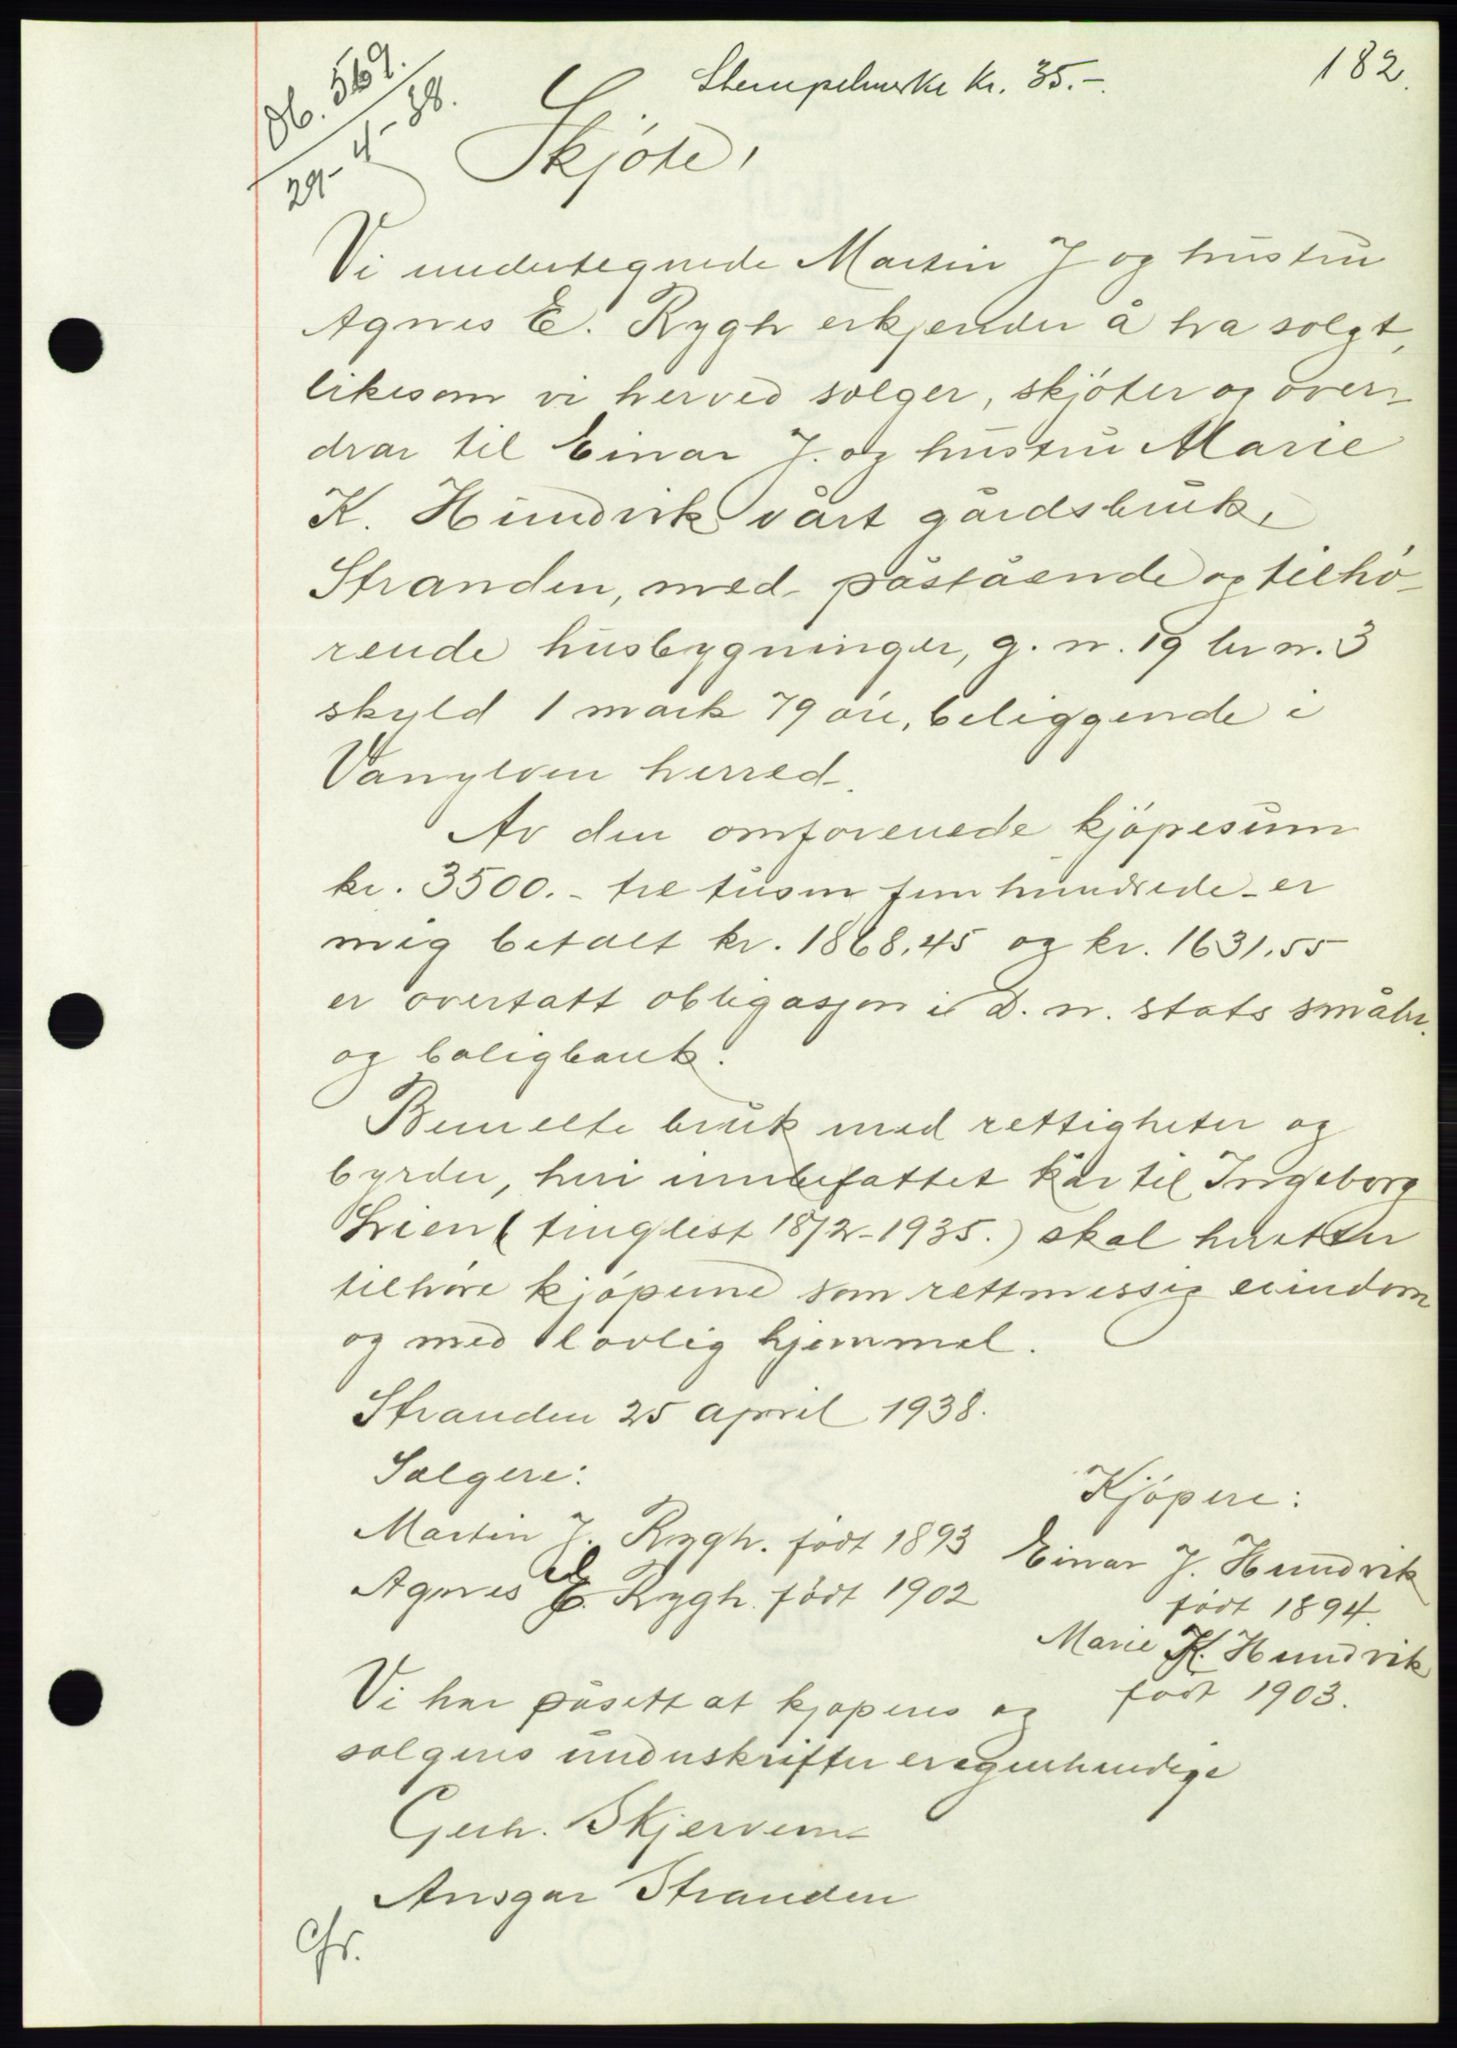 182.
Stempelmerke kr. 35.-.
Db. 569.
29-4-38.
Skjøte,
Vi undertegnede Martin J og hustru
Agnes E. Rygh erkjender å ha solgt,
likesom vi herved selger, skjøter og over-
drar til Einar J. og hustru Marie
K. Hundvik vårt gårdsbruk,
Stranden, med påstående og tilhø-
rende husbygninger, g. nr. 19 br nr. 3
skyld 1 mark 79 øre, beliggende i
Vanylven herred.
Av den omforenede kjøpesum
kr. 3500.- tre tusen fem hundrede - er
mig betalt kr. 1868.45 og kr. 1631.55
er overtatt obligasjon i D. n. stats småbr.
og boligbank.
Bemeldte bruk med rettigheter og
byrder, heri innbefattet kår til Ingeborg
Lien (tinglest 18/2-1935.) skal herefter
tilhøre kjøperne som rettmessig eiendom
og med lovlig hjemmel.
Stranden 25 april 1938.
Selgere:
Martin J. Rygh. født 1893
Agnes E. Rygh. født 1902
Kjøpere:
Einar J. Hundvik
født 1894.
Marie K. Hundvik
født 1903.
Vi har påsett at kjøperes og
selgeres underskrifter er egenhendige
Gerh. Skjervem
Ansgar Stranden